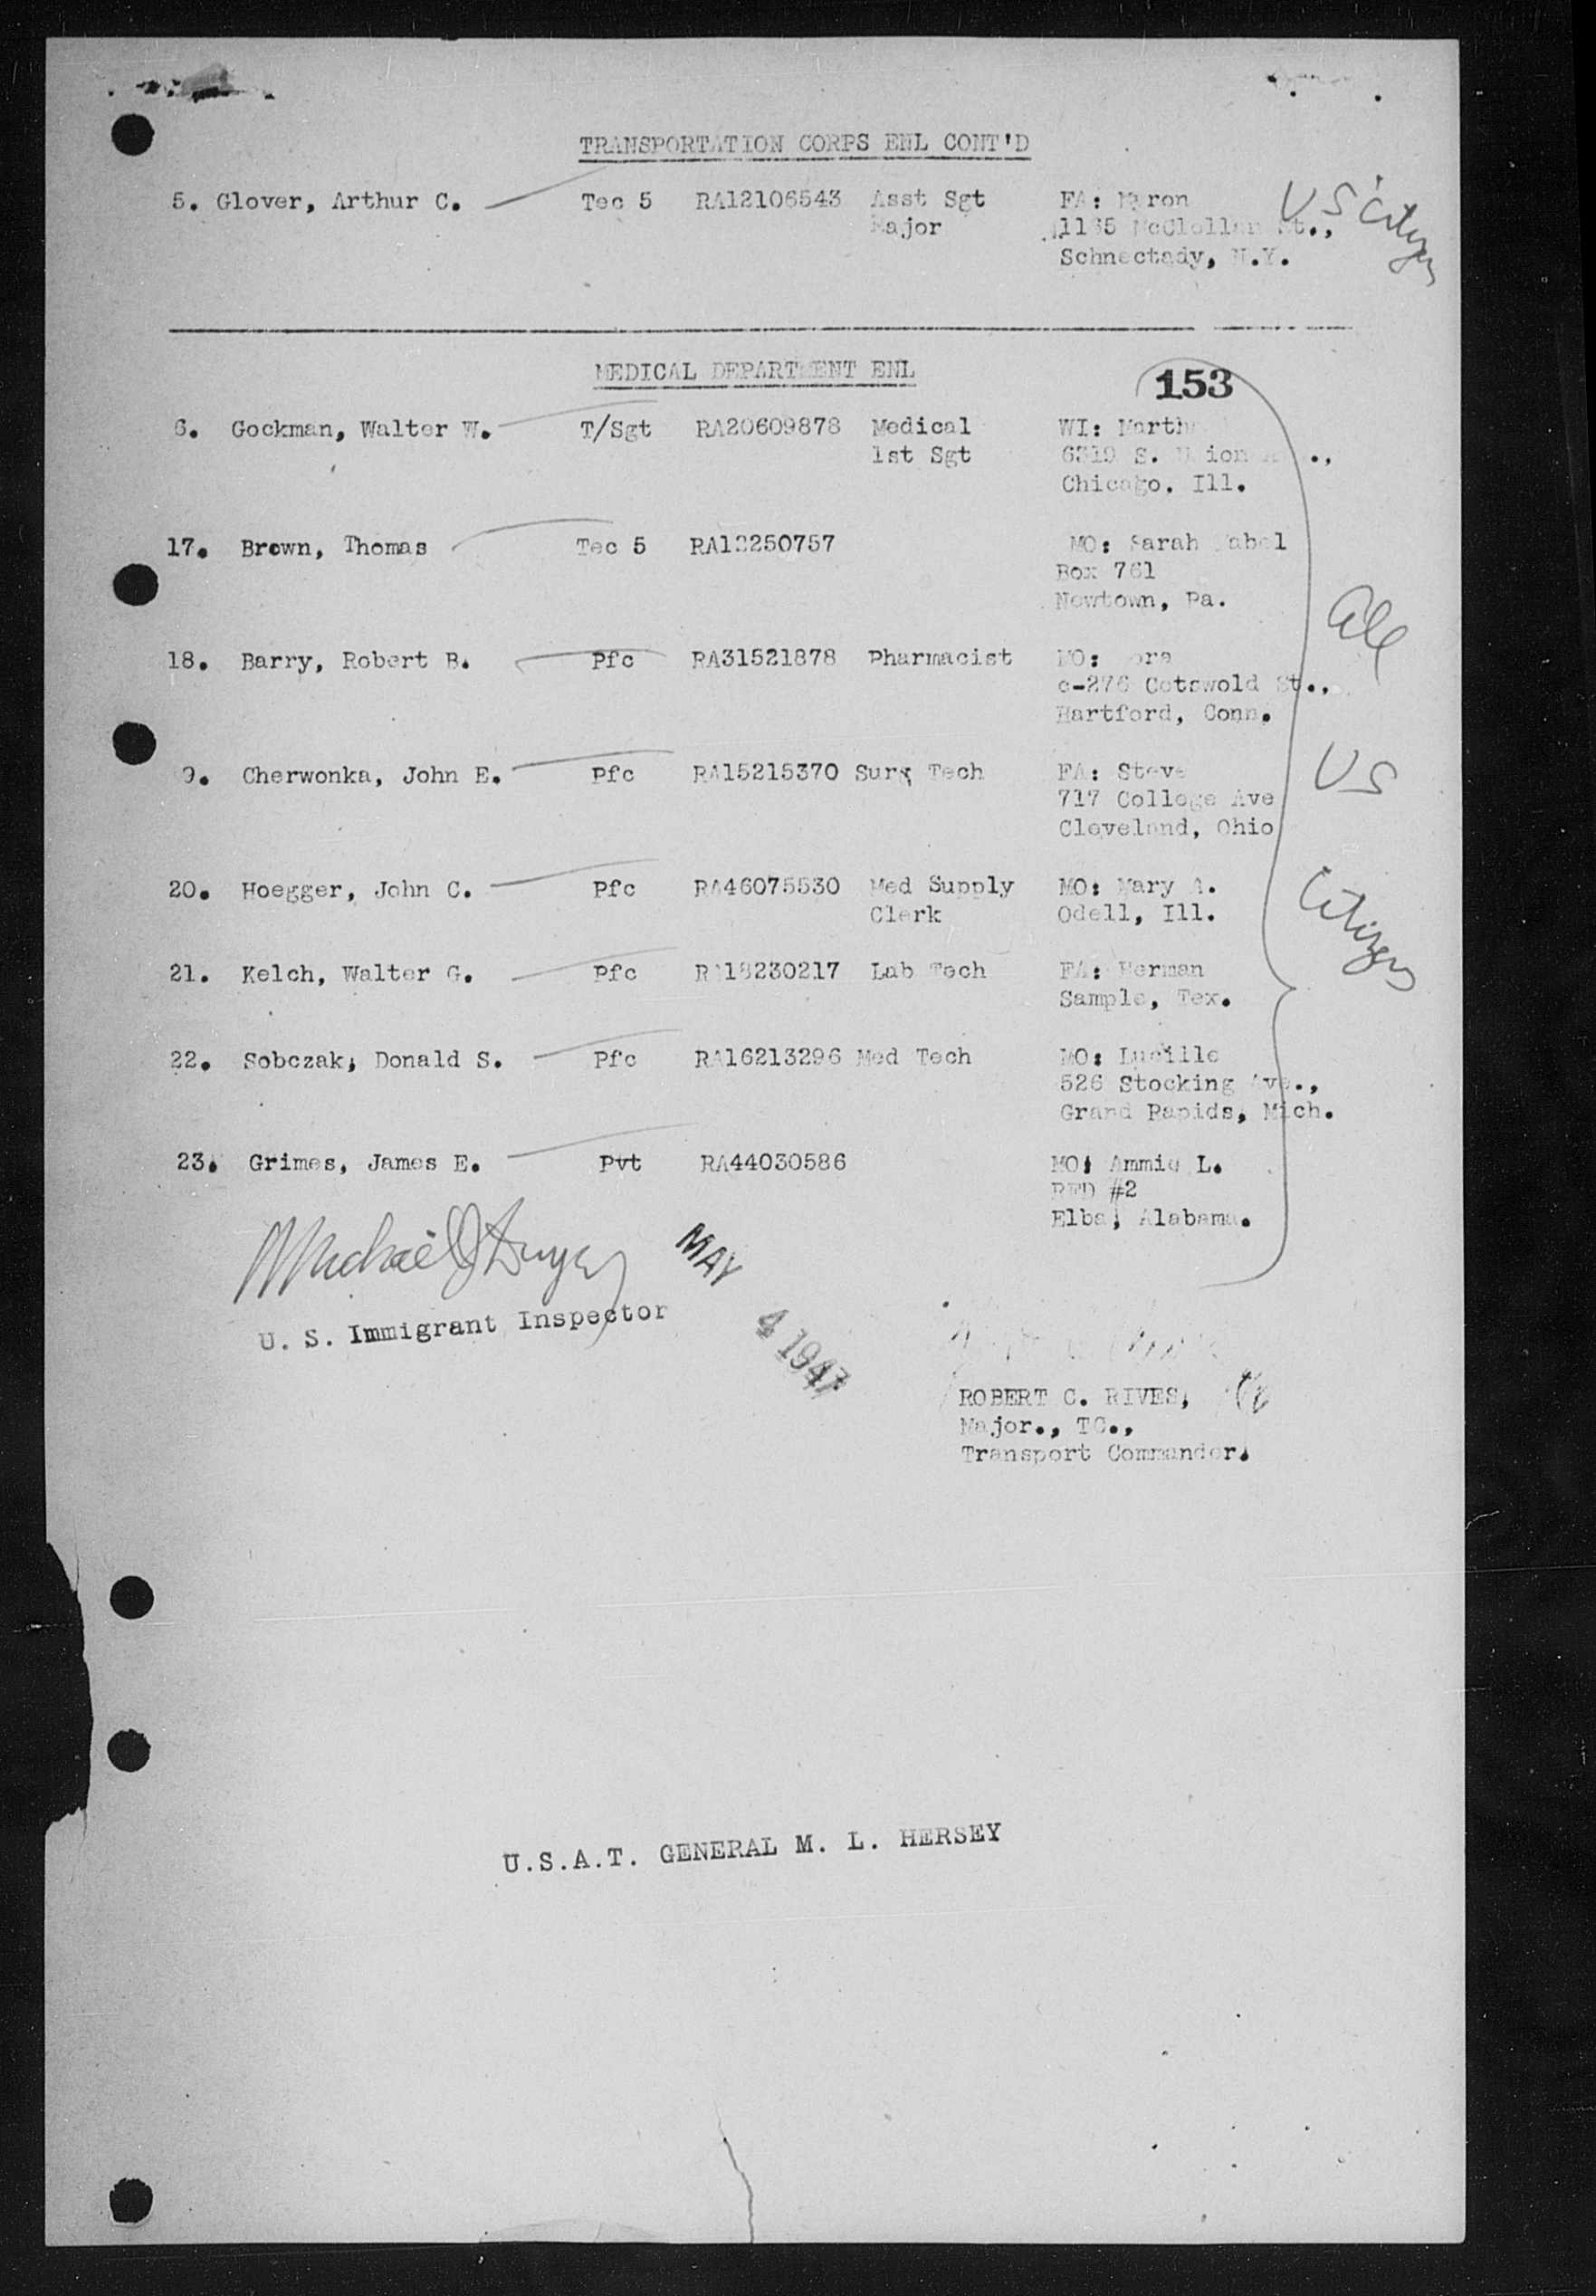 TRANSPORTATION CORPS ENL CONT'D
5. Glover, Arthur C. Tec 5 RA12106543 Asst Sgt FA: Myron US Citizen
Major 1165 McClellan St.,
Schnectady, N.Y.
MEDICAL DEPARTMENT ENL 153
6. Gockman, Walter W. T/Sgt RA20609878 Medical WI: Martha
1st Sgt 6319 S. Union
Chicago, Ill.
17. Brown, Thomas Tec 5 RA13250757 MO: Sarah Mabel
Box 761
Newtown, Pa.
All
18. Barry, Robert B. Pfc RA31521878 Pharmacist MO:
c-276 Cotswold St.,
Hartford, Conn.
US
9. Cherwonka, John E. Pfc RA15215370 Surg Tech FA: Steve
717 College Ave
Cleveland, Ohio
20. Hoegger, John C. Pfc RA46075530 Med Supply MO: Mary A.
Clerk Odell, Ill.
Citizens
21. Kelch, Walter G. Pfc RA18230217 Lab Tech FA: Herman
Sample, Tex.
22. Sobczak, Donald S. Pfc RA16213296 Med Tech MO: Lucille
526 Stocking Ave.,
Grand Rapids, Mich.
23. Grimes, James E. Pvt RA44030586 MO: Ammie L.
RFD #2
Elba, Alabama.
Michael J Dwyer
MAY 4 1947
U. S. Immigrant Inspector
ROBERT C. RIVES,
Major., TC.,
Transport Commander.
U.S.A.T. GENERAL M. L. HERSEY